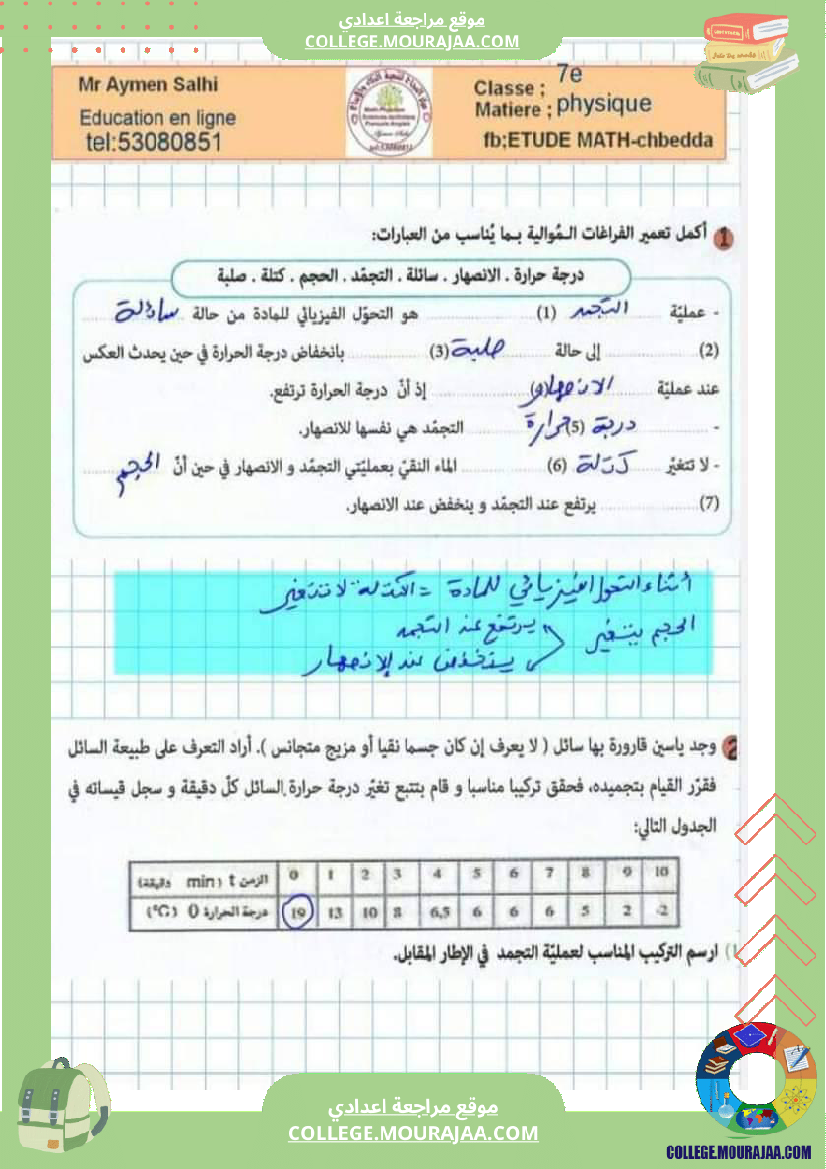 موقع مراجعة اعدادي
COLLEGE.MOURAJAA.COM
Mr Aymen Salhi
Education en ligne
tel:53080851
Classe ; 7e
Matiere ; physique
fb;ETUDE MATH-chbedda
1 أكمل تعمير الفراغات المُوالية بما يُناسب من العبارات:
درجة حرارة . الانصهار . سائلة . التجمّد . الحجم . كتلة . صلبة
- عمليّة التجمد (1) هو التحوّل الفيزيائي للمادة من حالة سائلة
(2) إلى حالة صلبة (3) بانخفاض درجة الحرارة في حين يحدث العكس
عند عمليّة الانصهار (4) إذ أنّ درجة الحرارة ترتفع.
- درجة (5) حرارة التجمّد هي نفسها للانصهار.
- لا تتغيّر كتلة (6) الماء النقيّ بعمليّتي التجمّد و الانصهار في حين أنّ الحجم
(7) يرتفع عند التجمّد و ينخفض عند الانصهار.
أثناء التحول الفيزيائي للمادة = الكتلة لا تتغير
الحجم يتغير يرتفع عند التجمد
ينخفض عند الانصهار
2 وجد ياسين قارورة بها سائل ( لا يعرف إن كان جسما نقيا أو مزيج متجانس ). أراد التعرف على طبيعة السائل
فقرّر القيام بتجميده، فحقق تركيبا مناسبا و قام بتتبع تغيّر درجة حرارة السائل كلّ دقيقة و سجل قيساته في
الجدول التالي:
الزمن t (min دقيقة) 0 1 2 3 4 5 6 7 8 9 10
درجة الحرارة θ (°C) 19 13 10 8 6,5 6 6 6 5 2 -2
1) ارسم التركيب المناسب لعمليّة التجمد في الإطار المقابل.
موقع مراجعة اعدادي
COLLEGE.MOURAJAA.COM
COLLEGE.MOURAJAA.COM